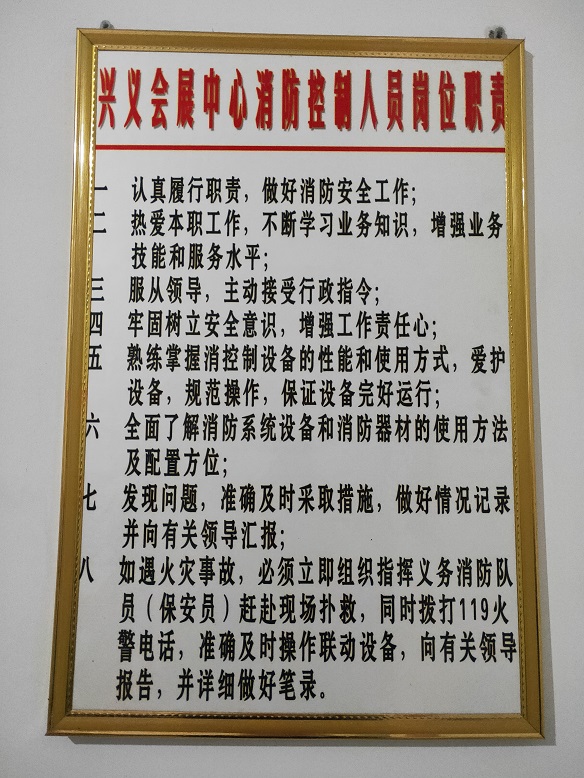 兴义会展中心消防控制人员岗位职责
一 认真履行职责，做好消防安全工作；
二 热爱本职工作，不断学习业务知识，增强业务
技能和服务水平；
三 服从领导，主动接受行政指令；
四 牢固树立安全意识，增强工作责任心；
五 熟练掌握消控制设备的性能和使用方式，爱护
设备，规范操作，保证设备完好运行；
六 全面了解消防系统设备和消防器材的使用方法
及配置方位；
七 发现问题，准确及时采取措施，做好情况记录
并向有关领导汇报；
八 如遇火灾事故，必须立即组织指挥义务消防队
员（保安员）赶赴现场扑救，同时拨打119火
警电话，准确及时操作联动设备，向有关领导
报告，并详细做好笔录。